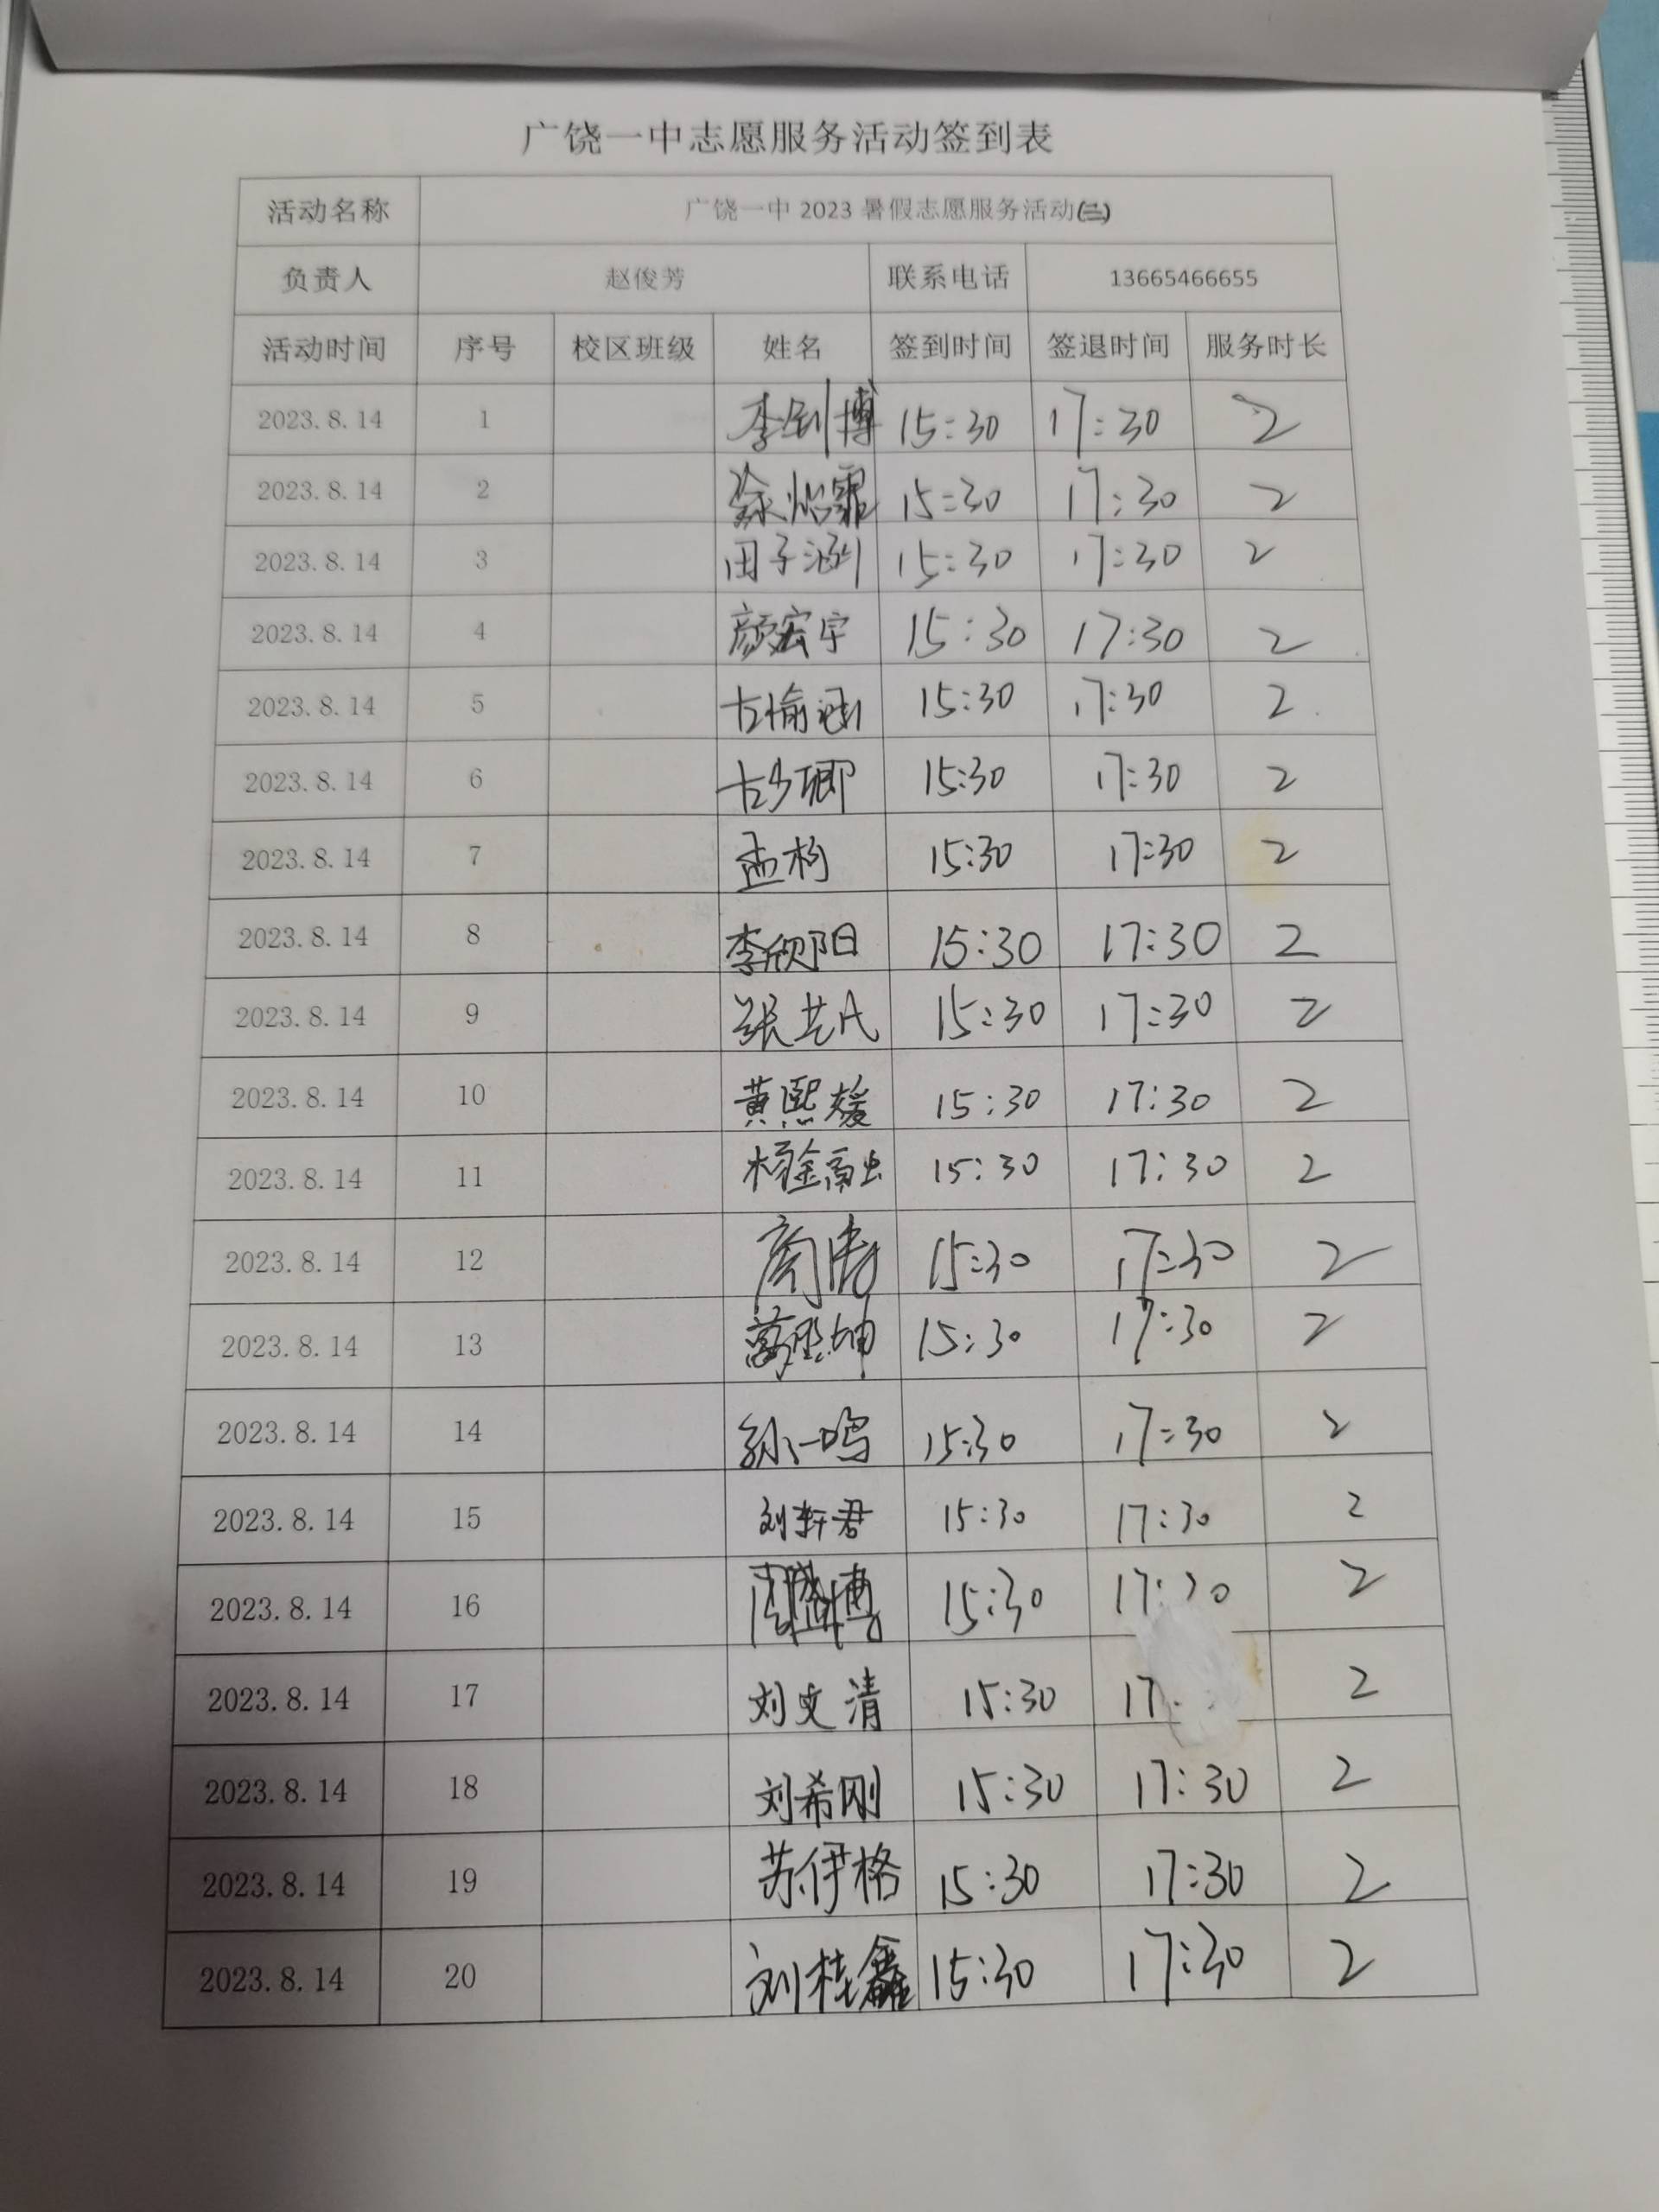 广饶一中志愿服务活动签到表
活动名称 广饶一中 2023 暑假志愿服务活动(三)
负责人 赵俊芳 联系电话 13665466655
活动时间 序号 校区班级 姓名 签到时间 签退时间 服务时长
2023.8.14 1 李钊博 15:30 17:30 2
2023.8.14 2 徐怡霏 15:30 17:30 2
2023.8.14 3 田子涵 15:30 17:30 2
2023.8.14 4 颜宏宇 15:30 17:30 2
2023.8.14 5 15:30 17:30 2
2023.8.14 6 15:30 17:30 2
2023.8.14 7 15:30 17:30 2
2023.8.14 8 李欣阳 15:30 17:30 2
2023.8.14 9 15:30 17:30 2
2023.8.14 10 黄熙媛 15:30 17:30 2
2023.8.14 11 15:30 17:30 2
2023.8.14 12 15:30 17:30 2
2023.8.14 13 15:30 17:30 2
2023.8.14 14 孙一鸣 15:30 17:30 2
2023.8.14 15 刘轩君 15:30 17:30 2
2023.8.14 16 周盛博 15:30 17:30 2
2023.8.14 17 刘文清 15:30 17: 2
2023.8.14 18 刘希刚 15:30 17:30 2
2023.8.14 19 苏伊格 15:30 17:30 2
2023.8.14 20 刘桂鑫 15:30 17:30 2